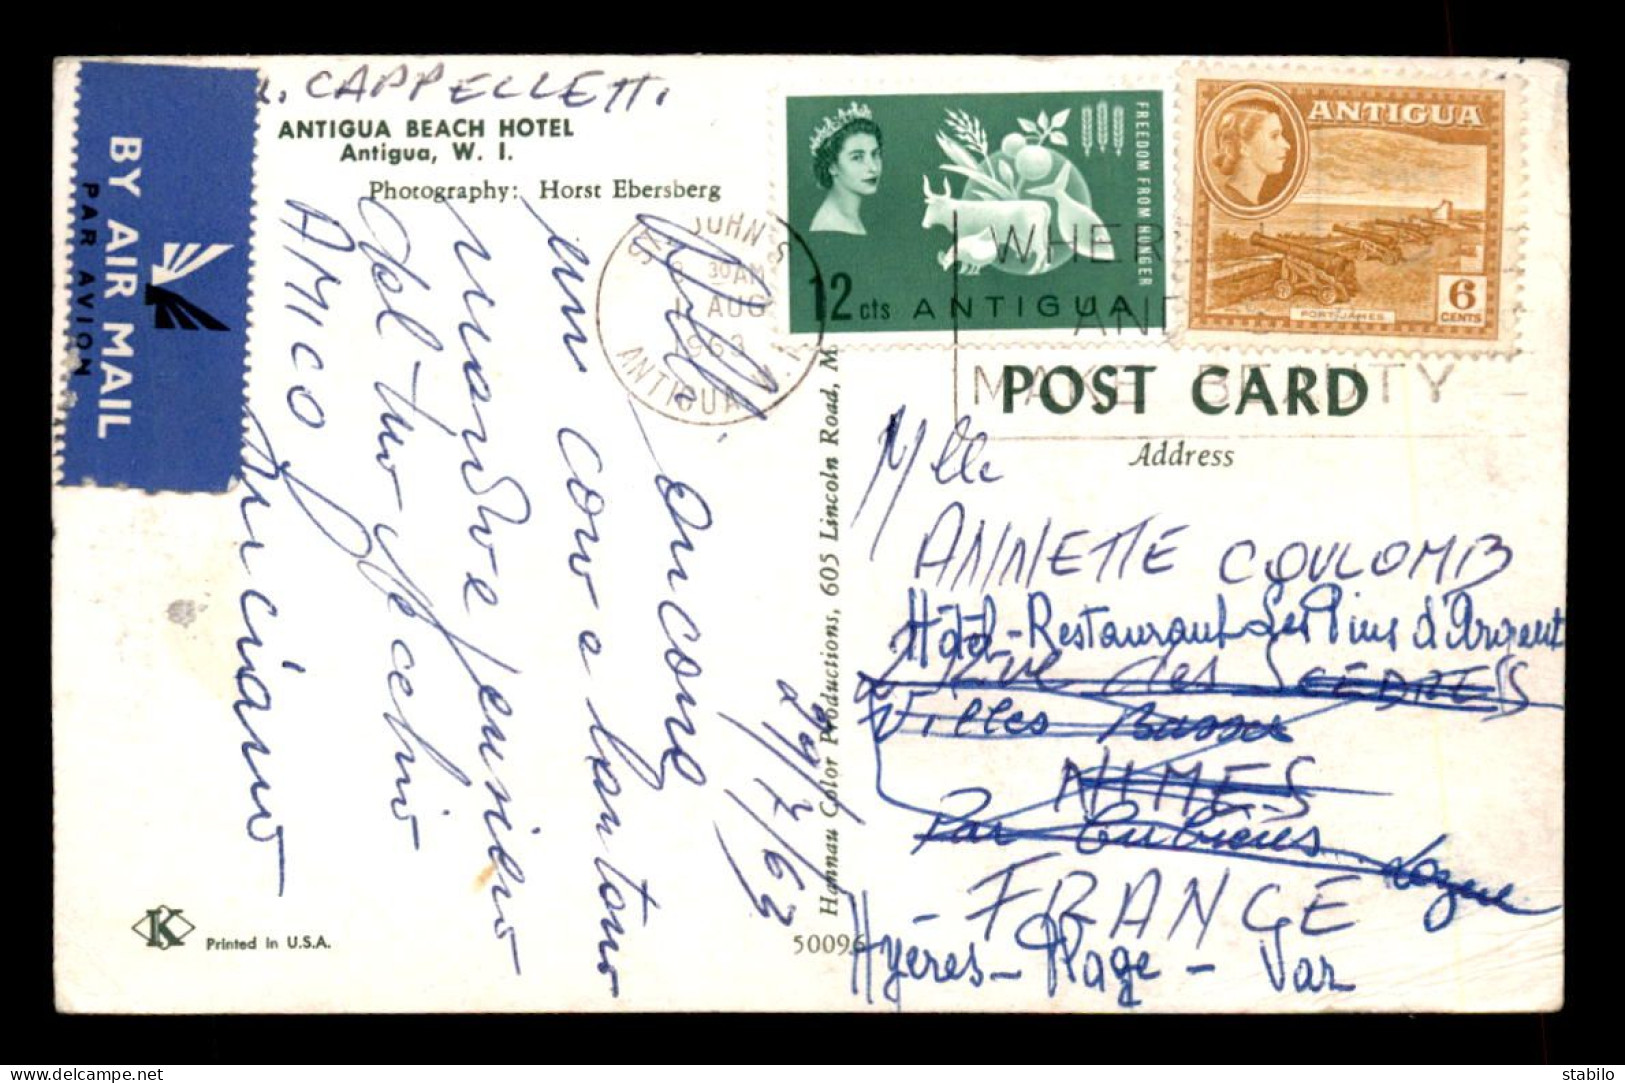 L. CAPPELLETTI
ANTIGUA BEACH HOTEL
Antigua, W. I.
Photography: Horst Ebersberg
BY AIR MAIL
PAR AVION
ST. JOHN'S
8 30 AM
1 AUG
1963
ANTIGUA W.I.
FREEDOM FROM HUNGER
12 cts ANTIGUA
ANTIGUA
PORT JAMES
6
CENTS
WHERE
AND
MAKE BEAUTY
POST CARD
Address
Mlle
ANNETTE COULOMB
Hôtel-Restaurant Les Pins d'Argent
2 Rue des CEDRES
Villes Basses
NIMES
Par
FRANCE
Hyères-Plage - Var
Ancona
29/7/63
un caro e lontano
pensiero
del tuo vecchio
AMICO
Luciano
Hannau Color Productions, 605 Lincoln Road, M
50096
K
Printed in U.S.A.
stabilo
delcampe.net